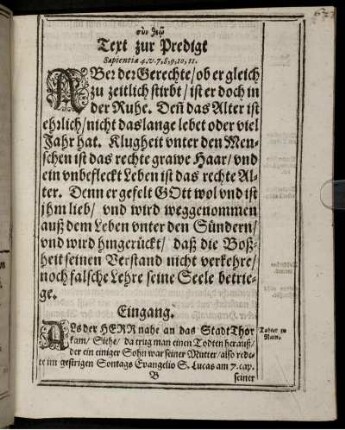 σὺν θεῷ
Text zur Predigt
Sapientiæ 4. v. 7, 8, 9, 10, 11.
ABer der Gerechte/ ob er gleich
zu zeitlich stirbt/ ist er doch in
der Ruhe. Deñ das Alter ist
ehrlich/ nicht das lange lebet oder viel
Jahr hat. Klugheit vnter den Men-
schen ist das rechte grawe Haar/ vnd
ein vnbefleckt Leben ist das rechte Al-
ter. Denn er gefelt GOtt wol vnd ist
jhm lieb/ vnd wird weggenommen
auß dem Leben vnter den Sündern/
vnd wird hingerückt/ daß die Boß-
heit seinen Verstand nicht verkehre/
noch falsche Lehre seine Seele betrie-
ge.
Eingang.
ALs der HERR nahe an das Stadt Thor
kam/ Siehe/ da trug man einen Todten herauß/
der ein einiger Sohn war seiner Mutter/ also rede-
te im gestrigen Sontags Evangelio S. Lucas am 7. cap.
Todter zu
Nain.
B
seiner